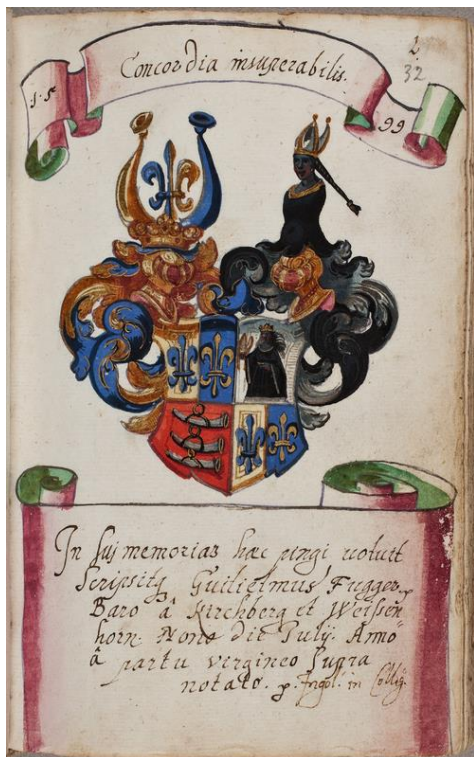 2
32
Concordia insuperabilis.
15
99
In sui memoriam hæc pingi voluit
Scripsitq Guilielmus Fugger.
Baro â Kirchberg et Weissen
horn. Nono die Iulij. Anno
â partu virgineo supra
notato. p. Ingol. in